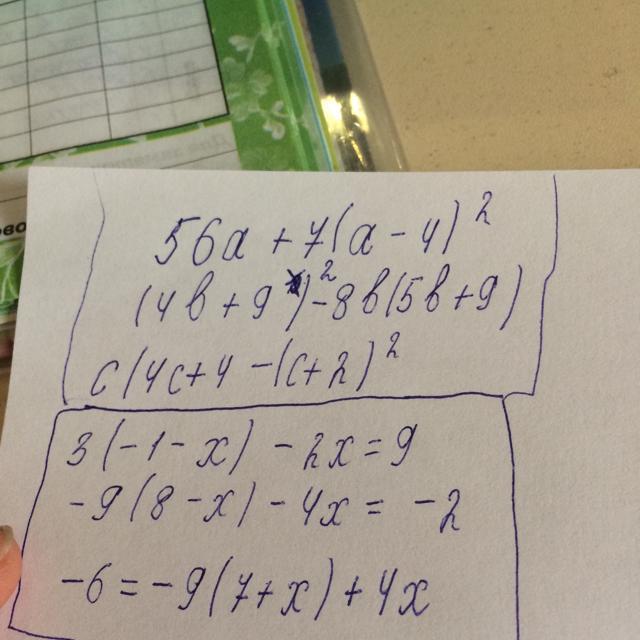 56a + 7(a - 4)²
(4b + 9)² - 8b(5b + 9)
c(4c + 4 - (c + 2)²
3(-1 - x) - 2x = 9
-9(8 - x) - 4x = -2
-6 = -9(7 + x) + 4x